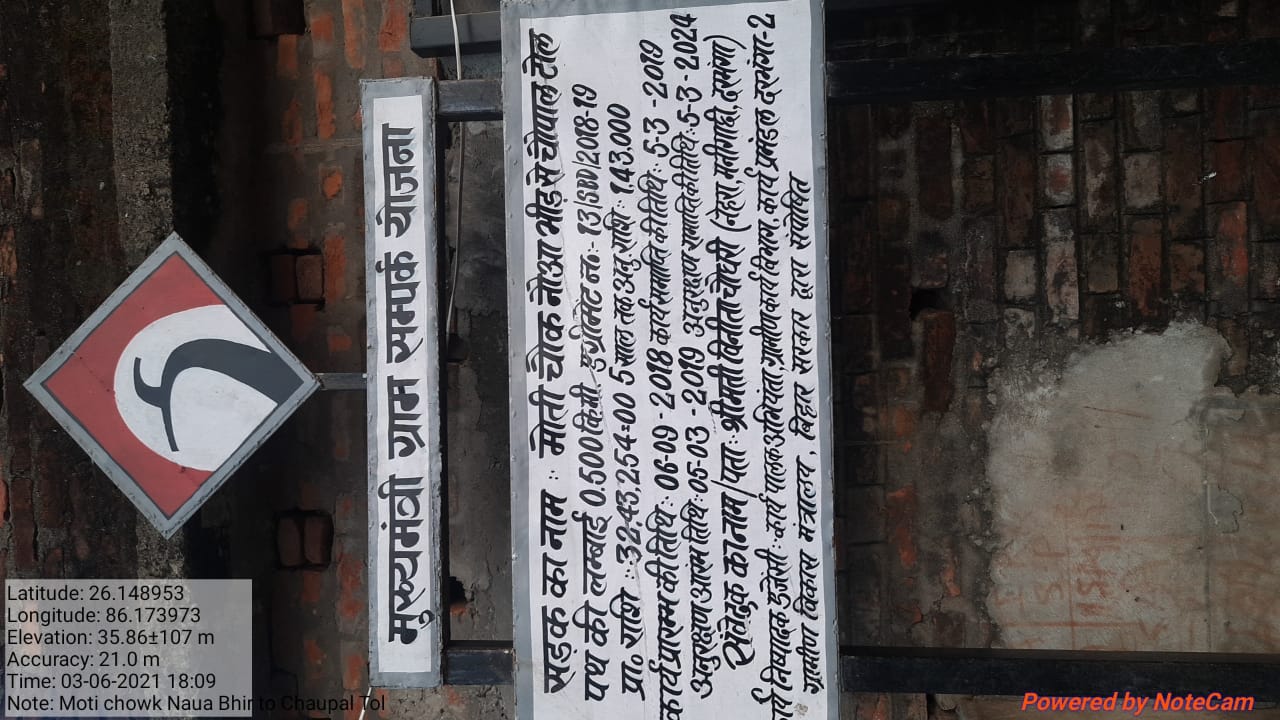 मुख्यमंत्री ग्राम सम्पर्क योजना
सड़क का नाम : मोती चौक नौआ भीड़ से चौपाल टोल
पथ की लम्बाई 0.500 किमी. एग्रीमेंट नं०:- 13/SBD/2018-19
प्रा० राशि : 32,43,254=00 5 साल तक अनु. राशि : 143,000
कार्य प्रारम्भ की तिथि : 06-09-2018 कार्य समाप्ति की तिथि : 5-3-2019
अनुरक्षण आरम्भ तिथि : 05-03-2019 अनुरक्षण समाप्ति की तिथि : 5-3-2024
संवेदक का नाम/पता : श्रीमती विनीता चौधरी (नेहरा, मनीगाछी, दरभंगा)
कार्य निष्पादक एजेंसी : कार्यपालक अभियंता, ग्रामीण कार्य विभाग, कार्य प्रमंडल दरभंगा-2
ग्रामीण विकास मंत्रालय, बिहार सरकार द्वारा संपोषित
Latitude: 26.148953
Longitude: 86.173973
Elevation: 35.86±107 m
Accuracy: 21.0 m
Time: 03-06-2021 18:09
Note: Moti chowk Naua Bhir to Chaupal Tol
Powered by NoteCam